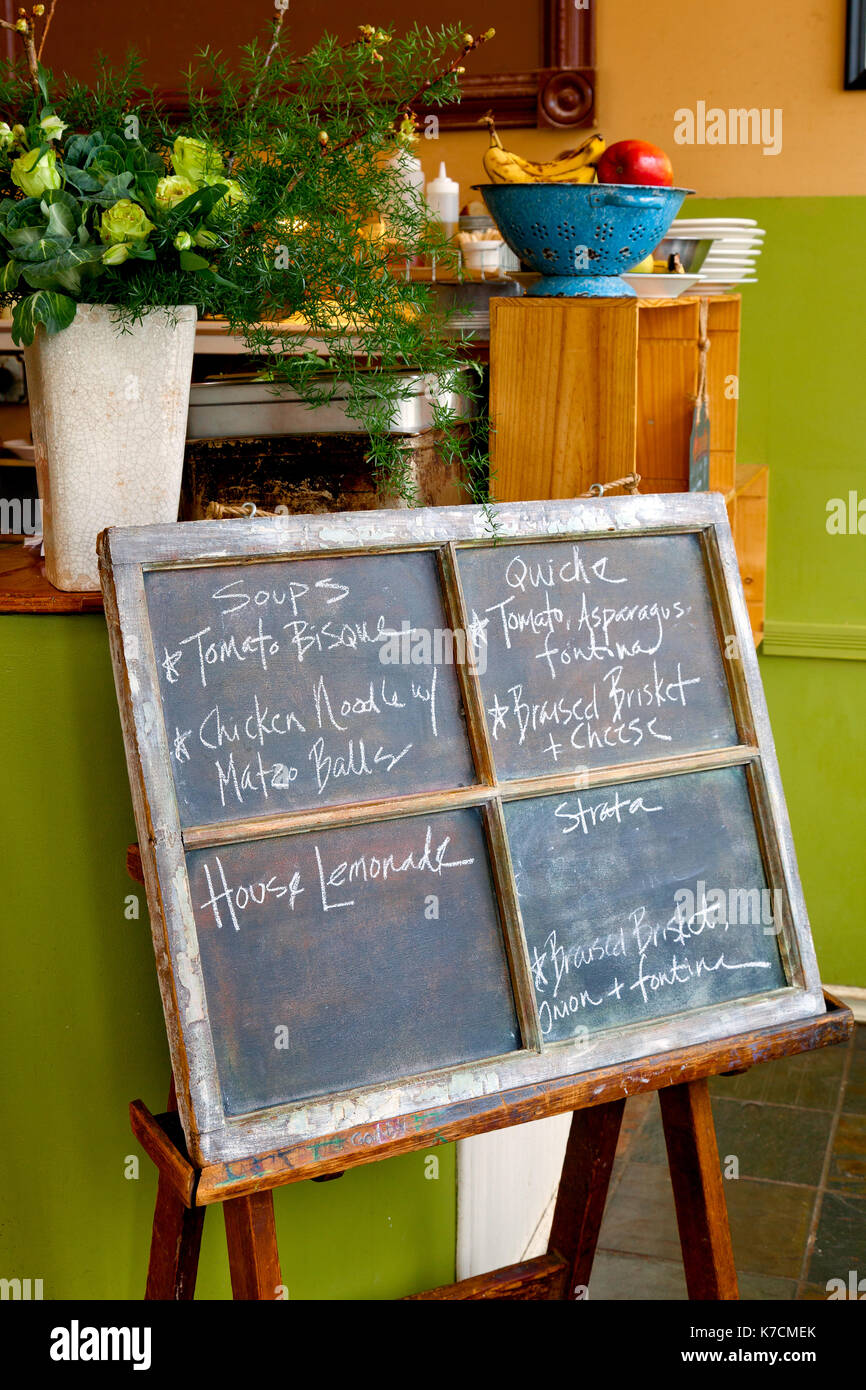 Soups
* Tomato Bisque
* Chicken Noodle w/
Matzo Balls
Quiche
* Tomato, Asparagus,
fontina
* Braised Brisket
+ Cheese
House Lemonade
Strata
* Braised Brisket,
Onion + fontina
alamy stock photo
K7CMEK
www.alamy.com